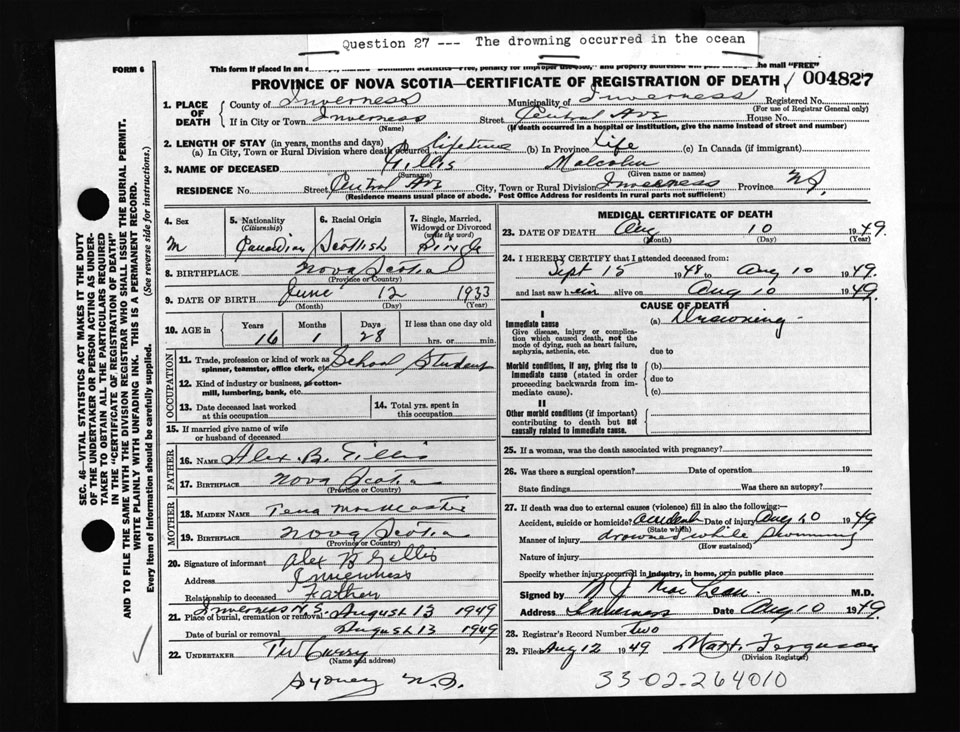 Question 27 --- The drowning occurred in the ocean
FORM 6
This form if placed in an
PROVINCE OF NOVA SCOTIA—CERTIFICATE OF REGISTRATION OF DEATH 004827
1. PLACE OF DEATH County of Inverness Municipality of Inverness Registered No.
(For use of Registrar General only)
If in City or Town Inverness Street Central Ave House No.
(Name) (If death occurred in a hospital or institution, give the name instead of street and number)
2. LENGTH OF STAY (in years, months and days)
(a) In City, Town or Rural Division where death occurred lifetime (b) In Province Life (c) In Canada (if immigrant)
3. NAME OF DECEASED Gillis Malcolm
(Surname) (Given name or names)
RESIDENCE No. Street Central Ave City, Town or Rural Division Inverness Province N.S.
(Residence means usual place of abode. Post Office Address for residents in rural parts not sufficient)
4. Sex M
5. Nationality (Citizenship) Canadian
6. Racial Origin Scottish
7. Single, Married, Widowed or Divorced (write the word) Single
8. BIRTHPLACE Nova Scotia
(Province or Country)
9. DATE OF BIRTH June 12 1933
(Month) (Day) (Year)
10. AGE in Years Months Days If less than one day old
16 1 28 hrs. or min.
OCCUPATION
11. Trade, profession or kind of work as School Student
spinner, teamster, office clerk, etc.
12. Kind of industry or business, as cotton-
mill, lumbering, bank, etc.
13. Date deceased last worked at this occupation
14. Total yrs. spent in this occupation
15. If married give name of wife
or husband of deceased
FATHER
16. NAME Alex. B. Gillis
17. BIRTHPLACE Nova Scotia
(Province or Country)
MOTHER
18. MAIDEN NAME Tena MacMaster
19. BIRTHPLACE Nova Scotia
(Province or Country)
20. Signature of informant Alex B Gillis
Address Inverness
Relationship to deceased Father
21. Place of burial, cremation or removal Inverness N.S. August 13 1949
Date of burial or removal August 13 1949
22. UNDERTAKER T W Curry
(Name and address)
Sydney N.S.
MEDICAL CERTIFICATE OF DEATH
23. DATE OF DEATH Aug 10 1949.
(Month) (Day) (Year)
24. I HEREBY CERTIFY that I attended deceased from:
Sept 15 1948 to Aug 10 1949.
and last saw him alive on Aug 10 1949.
CAUSE OF DEATH
I
Immediate cause (a) Drowning
Give disease, injury or complica-
tion which caused death, not the
mode of dying, such as heart failure,
asphyxia, asthenia, etc. due to
Morbid conditions, if any, giving rise to (b)
immediate cause (stated in order due to
proceeding backwards from im-
mediate cause). (c)
II
Other morbid conditions (if important)
contributing to death but not
causally related to immediate cause.
25. If a woman, was the death associated with pregnancy?
26. Was there a surgical operation? Date of operation 19
State findings Was there an autopsy?
27. If death was due to external causes (violence) fill in also the following:
Accident, suicide or homicide? accident Date of injury Aug 10 1949
(State which)
Manner of injury drowned while swimming
(How sustained)
Nature of injury
Specify whether injury occurred in industry, in home, or in public place
Signed by N J MacLean M.D.
Address Inverness Date Aug 10 1949.
28. Registrar's Record Number Two
29. Filed Aug 12 1949 Matt. Ferguson
(Division Registrar)
33-02-264010
SEC. 46—VITAL STATISTICS ACT MAKES IT THE DUTY
OF THE UNDERTAKER OR PERSON ACTING AS UNDER-
TAKER TO OBTAIN ALL THE PARTICULARS REQUIRED
IN THE "CERTIFICATE OF REGISTRATION OF DEATH"
AND TO FILE THE SAME WITH THE DIVISION REGISTRAR WHO SHALL ISSUE THE BURIAL PERMIT.
WRITE PLAINLY WITH UNFADING INK. THIS IS A PERMANENT RECORD.
Every item of Information should be carefully supplied. (See reverse side for instructions.)